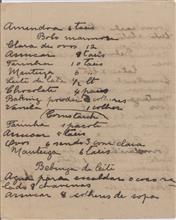 Amendoa 6 tacis
Bolo marmore
Clara de ovos 12
Assucar 8 tacis
Farinha 10 tacis
Manteiga 6 "
Leite de
Chocolate 4
Baking powder
1 colher
Cornstach
Farinha 1 pacote
Assucar 8 tacis
Ovos 6 sendo 3 com clara
Manteiga 6 tacis
Bebinca de leite
Agua para escaldar o coco ra-
lado 8 chavenas
Assucar 8 colheres de sopa